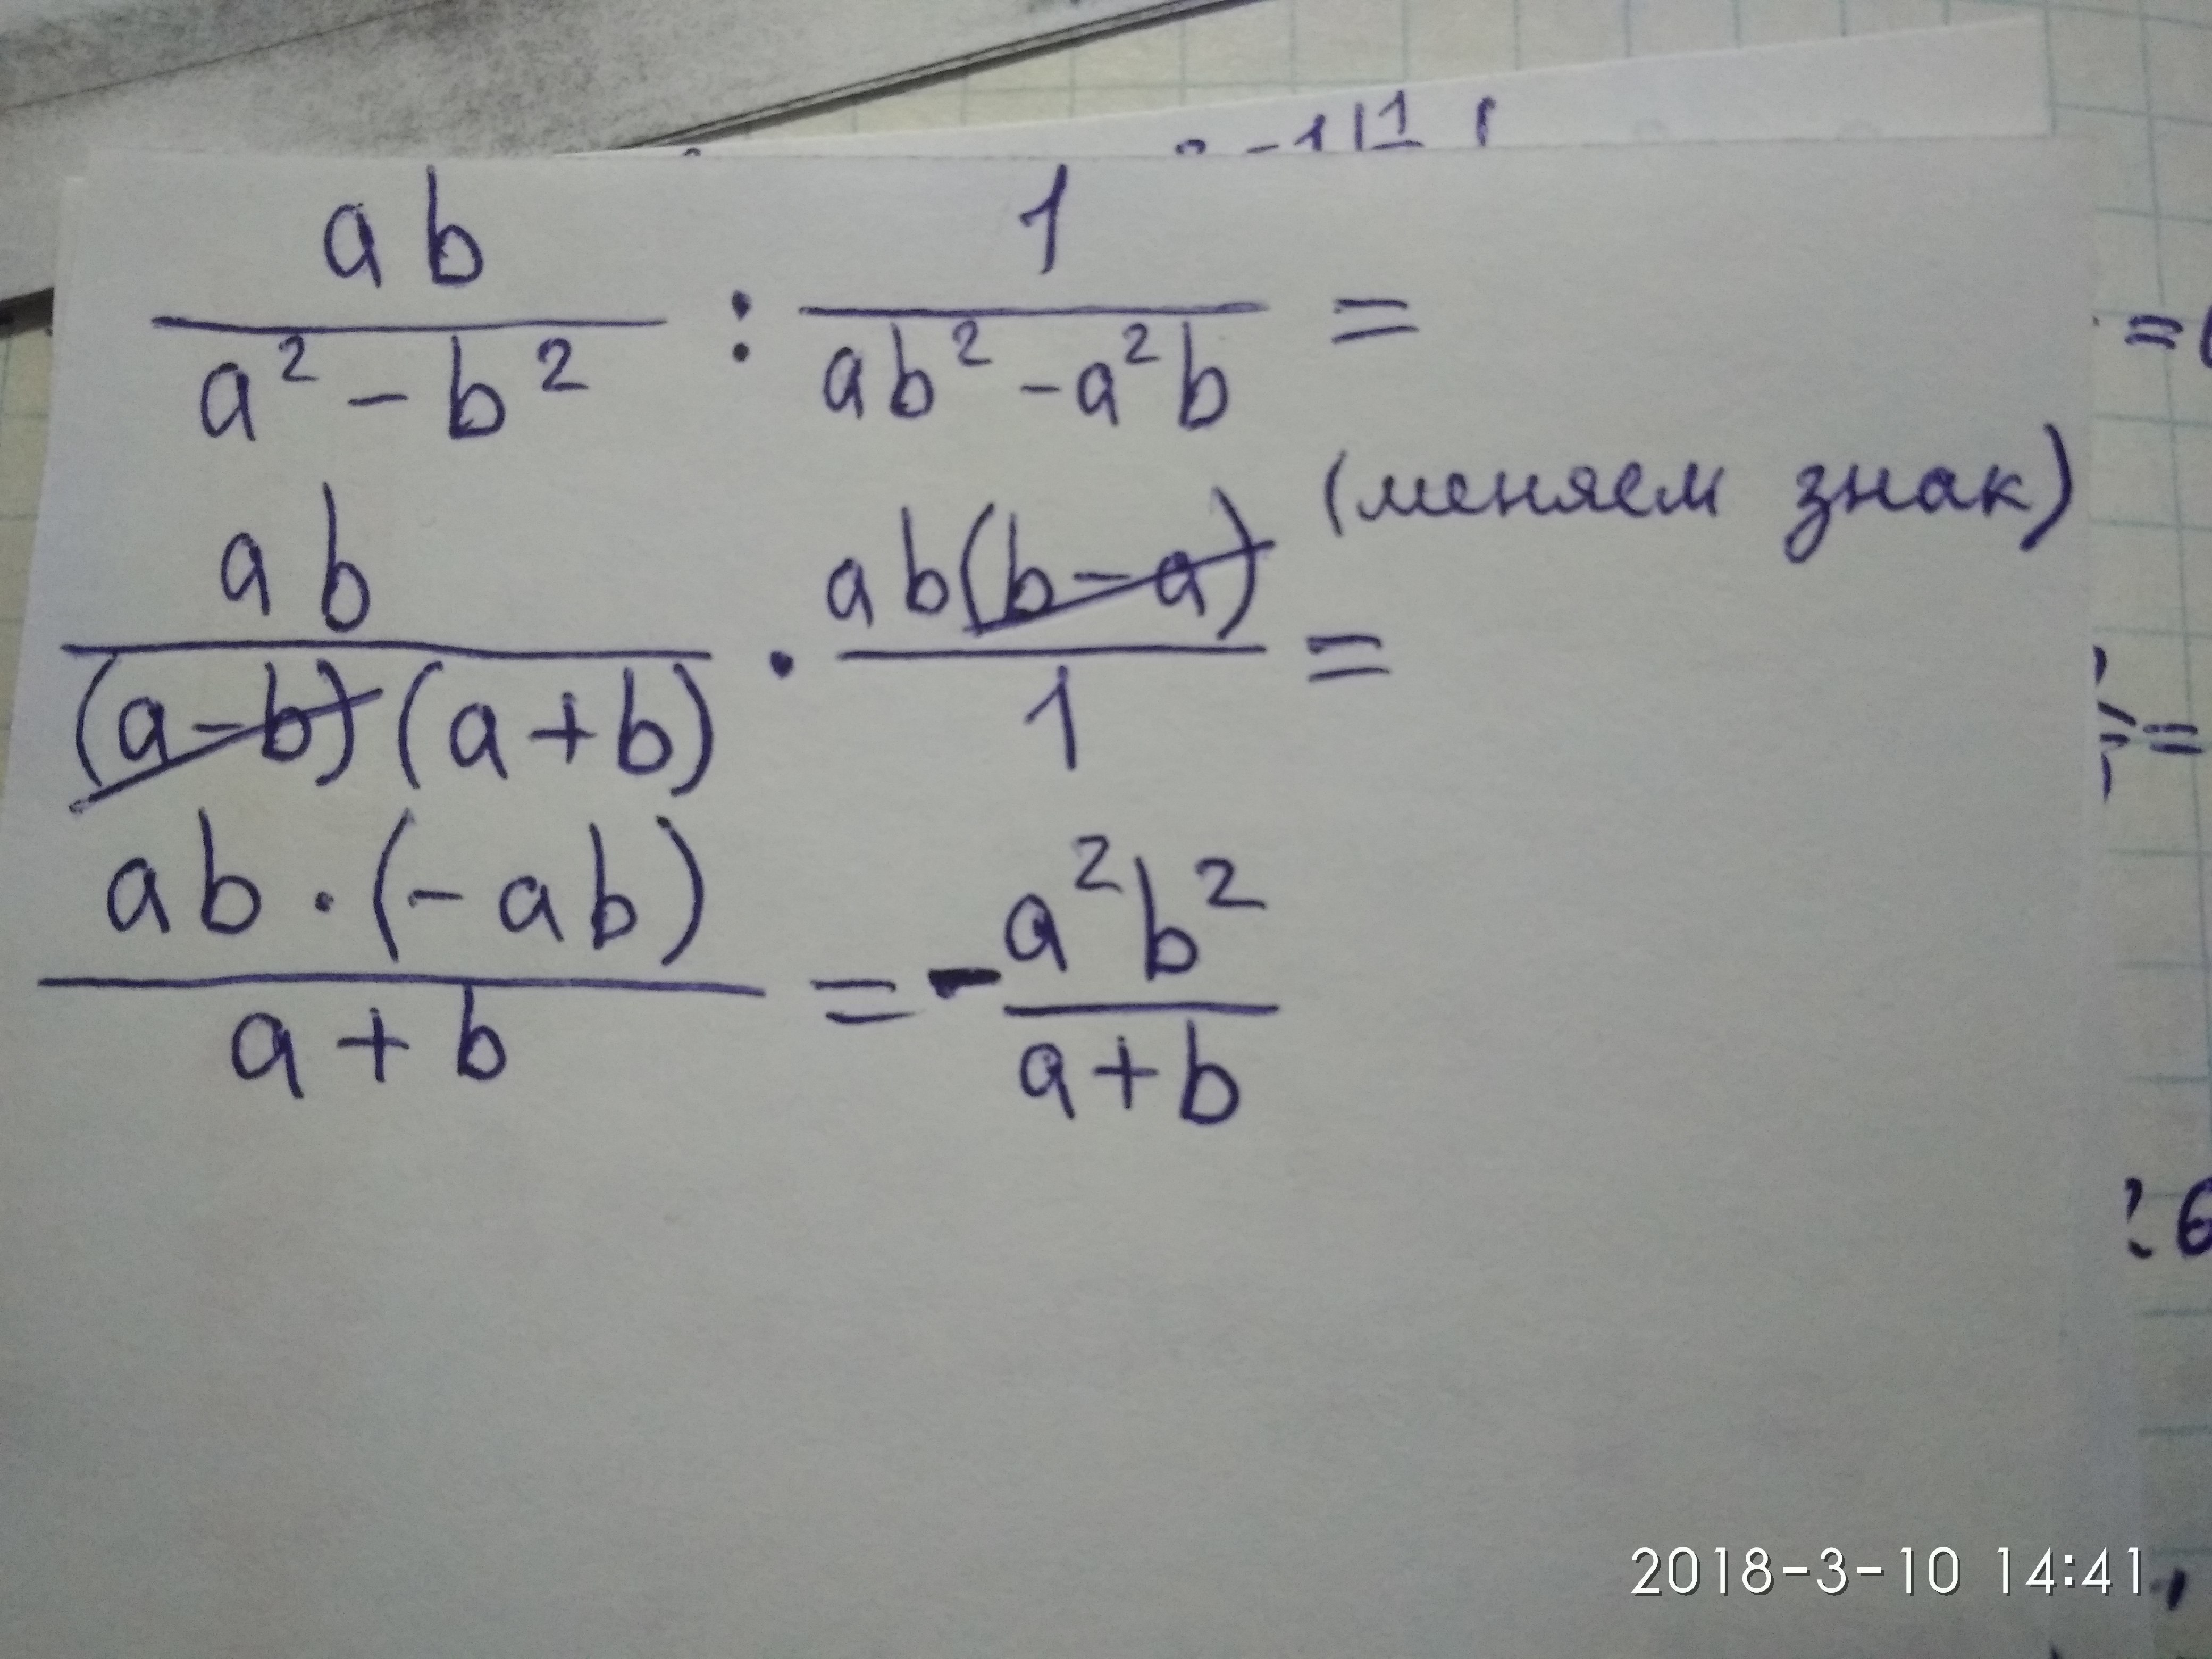 ab/(a² - b²) : 1/(ab² - a²b) =
(меняем знак)
ab/((a-b)(a+b)) · ab(b-a)/1 =
ab·(-ab)/(a+b) = -a²b²/(a+b)
2018-3-10 14:41